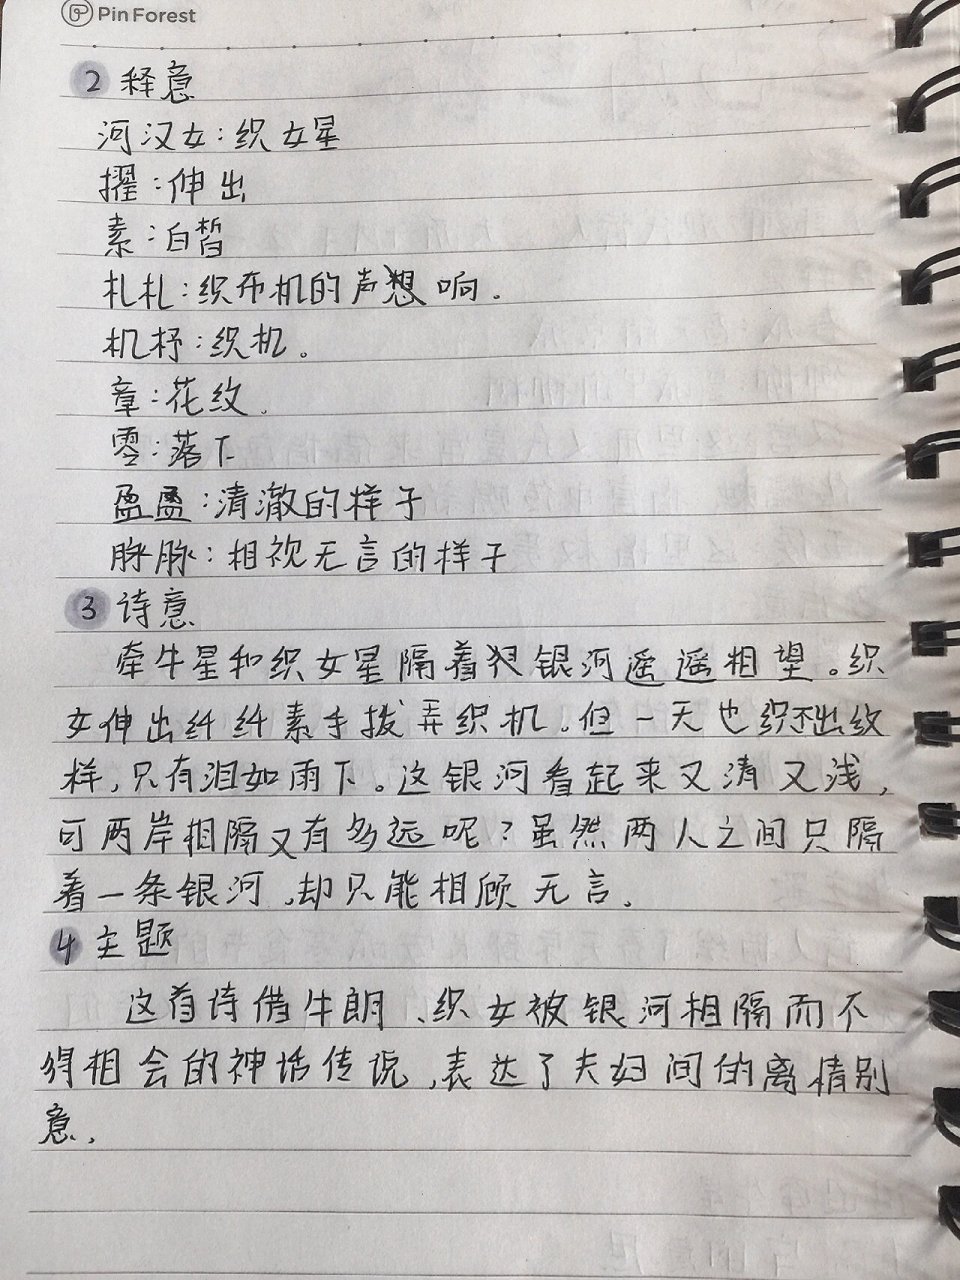 PinForest
2 释意
河汉女：织女星
擢：伸出
素：白皙
札札：织布机的声想响.
机杼：织机。
章：花纹.
零：落下
盈盈：清澈的样子
脉脉：相视无言的样子
3 诗意
牵牛星和织女星隔着银河遥遥相望。织
女伸出纤纤素手拨弄织机。但一天也织不出纹
样，只有泪如雨下。这银河看起来又清又浅，
可两岸相隔又有多远呢？虽然两人之间只隔
着一条银河，却只能相顾无言.
4 主题
这首诗借牛朗、织女被银河相隔而不
得相会的神话传说，表达了夫妇间的离情别
意.